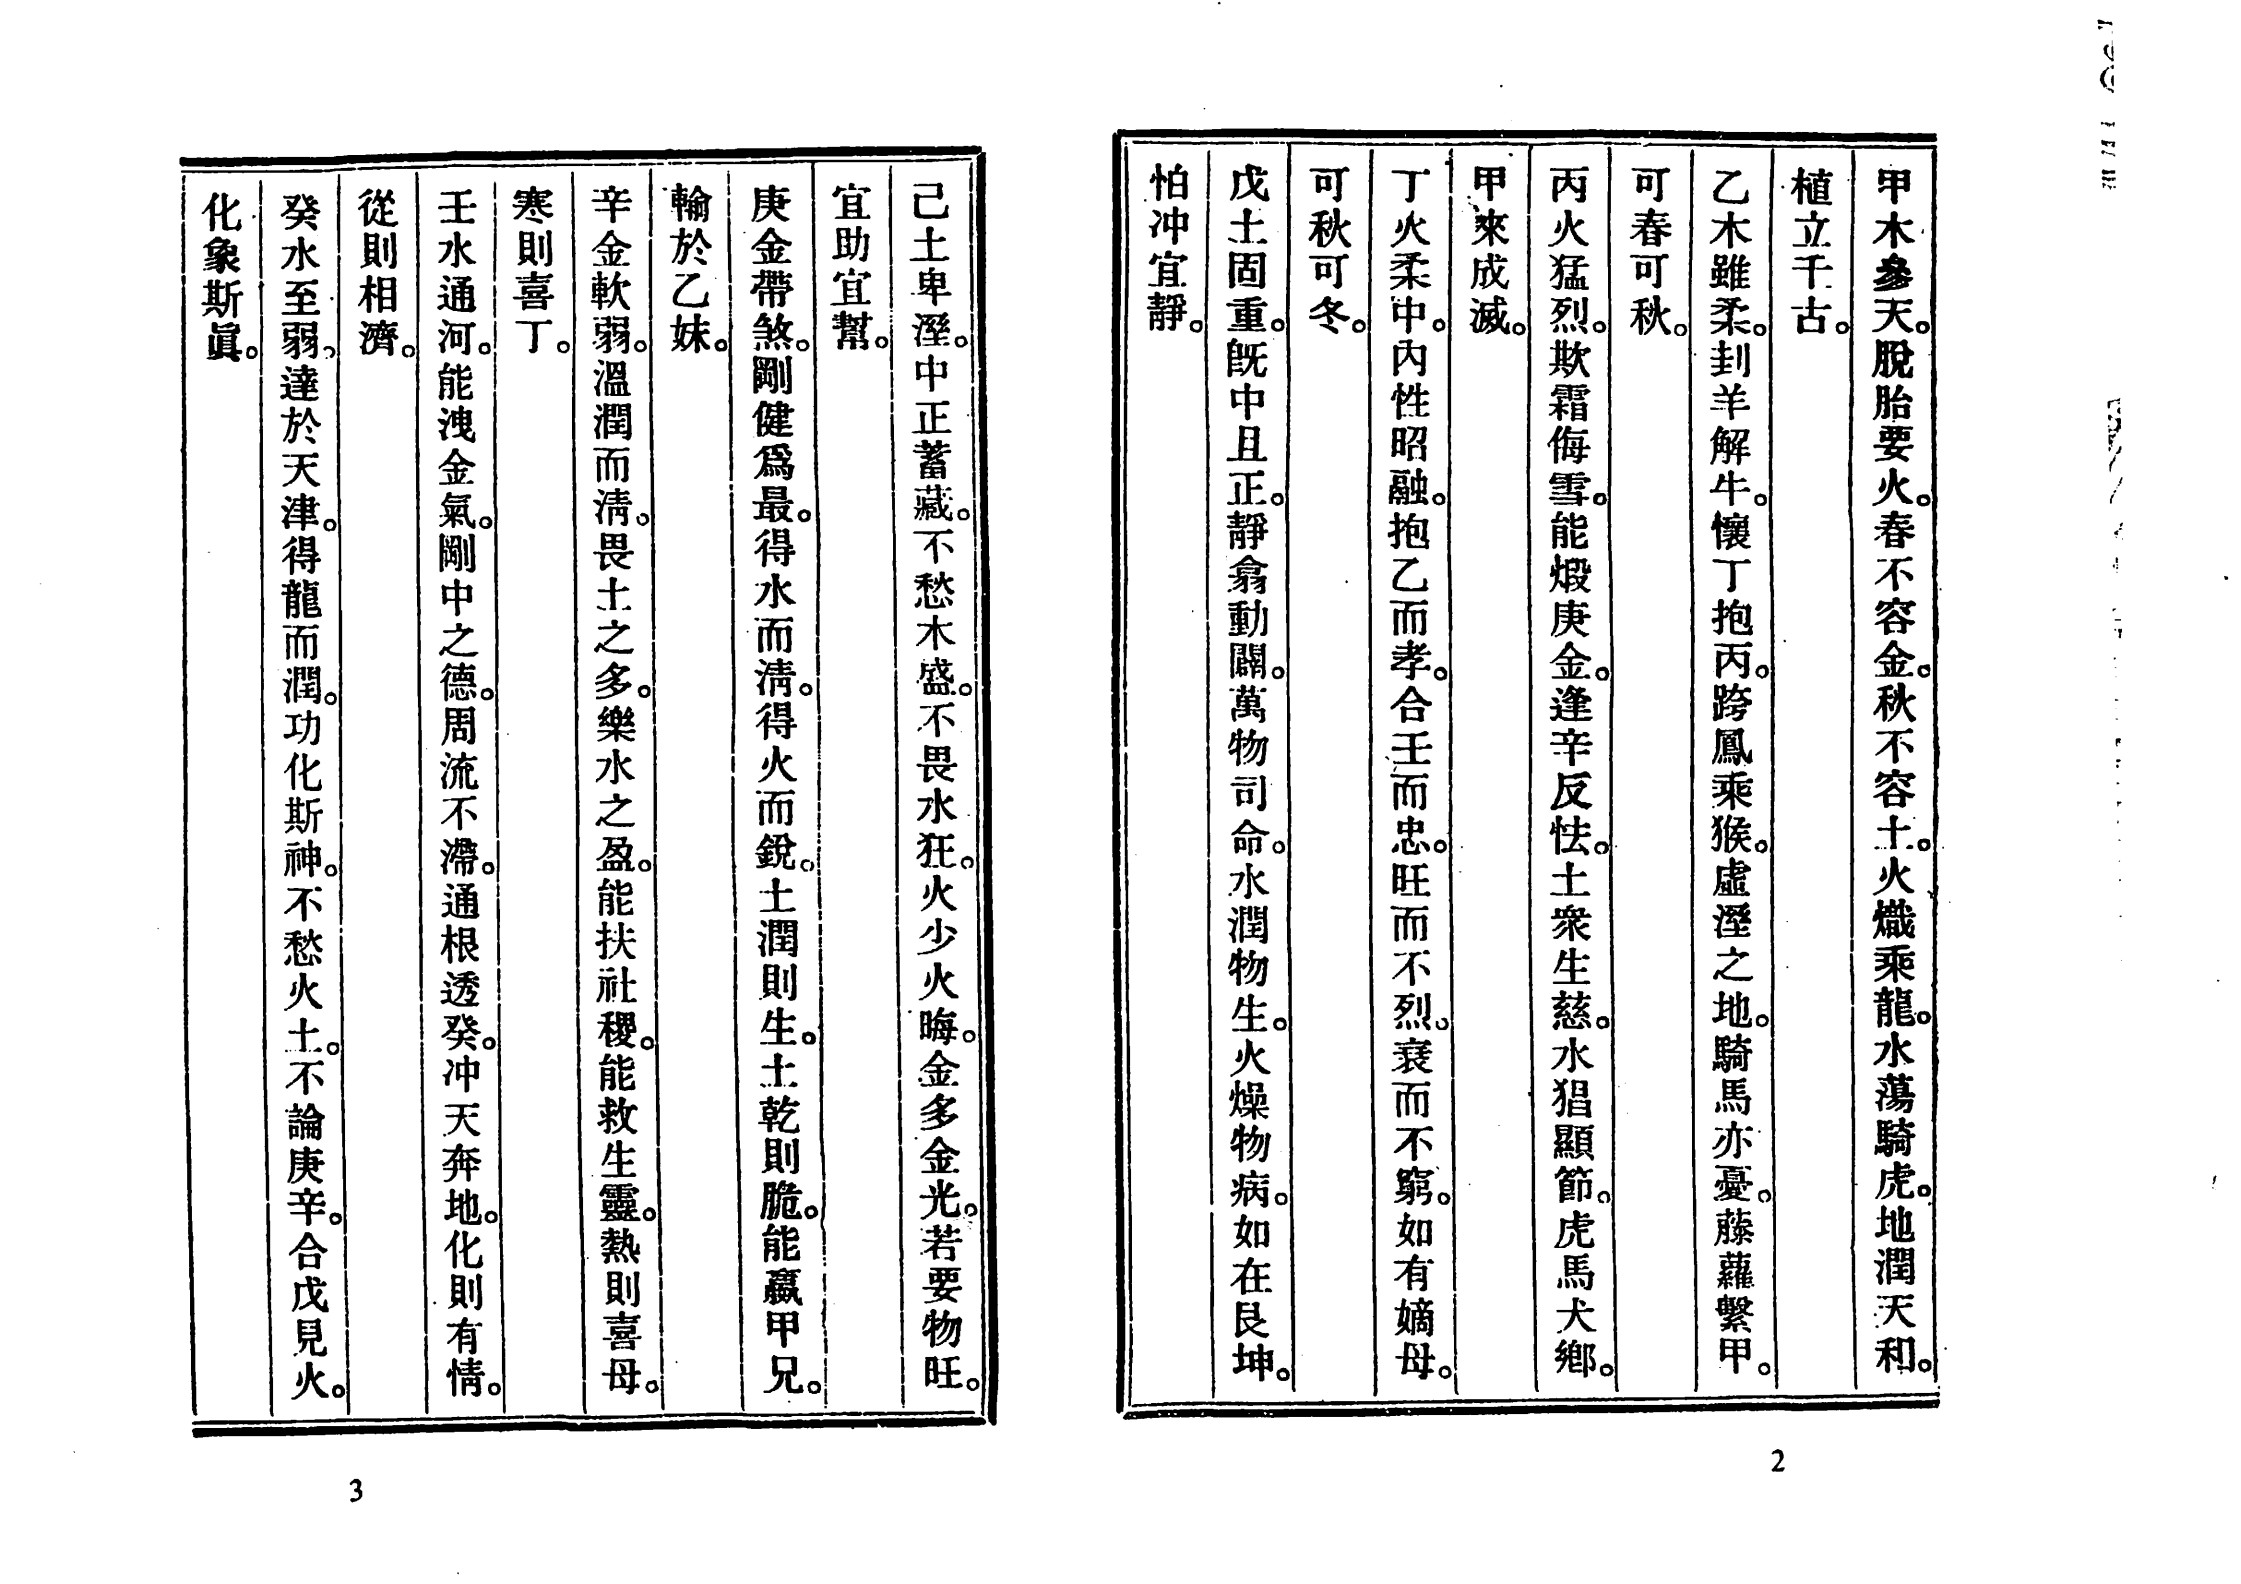 甲木參天。脫胎要火。春不容金。秋不容土。火熾乘龍。水蕩騎虎。地潤天和。
植立千古。
乙木雖柔。刲羊解牛。懷丁抱丙。跨鳳乘猴。虛溼之地。騎馬亦憂。藤蘿繫甲。
可春可秋。
丙火猛烈。欺霜侮雪。能煅庚金。逢辛反怯。土衆生慈。水猖顯節。虎馬犬鄉。
甲來成滅。
丁火柔中。內性昭融。抱乙而孝。合壬而忠。旺而不烈。衰而不窮。如有嫡母。
可秋可冬。
戊土固重。既中且正。靜翕動闢。萬物司命。水潤物生。火燥物病。如在艮坤。
怕冲宜靜。
2
己土卑溼。中正蓄藏。不愁木盛。不畏水狂。火少火晦。金多金光。若要物旺。
宜助宜幫。
庚金帶煞。剛健爲最。得水而淸。得火而銳。土潤則生。土乾則脆。能贏甲兄。
輸於乙妹。
辛金軟弱。溫潤而淸。畏土之多。樂水之盈。能扶社稷。能救生靈。熱則喜母。
寒則喜丁。
壬水通河。能洩金氣。剛中之德。周流不滯。通根透癸。冲天奔地。化則有情。
從則相濟。
癸水至弱。達於天津。得龍而潤。功化斯神。不愁火土。不論庚辛。合戊見火。
化象斯眞。
3